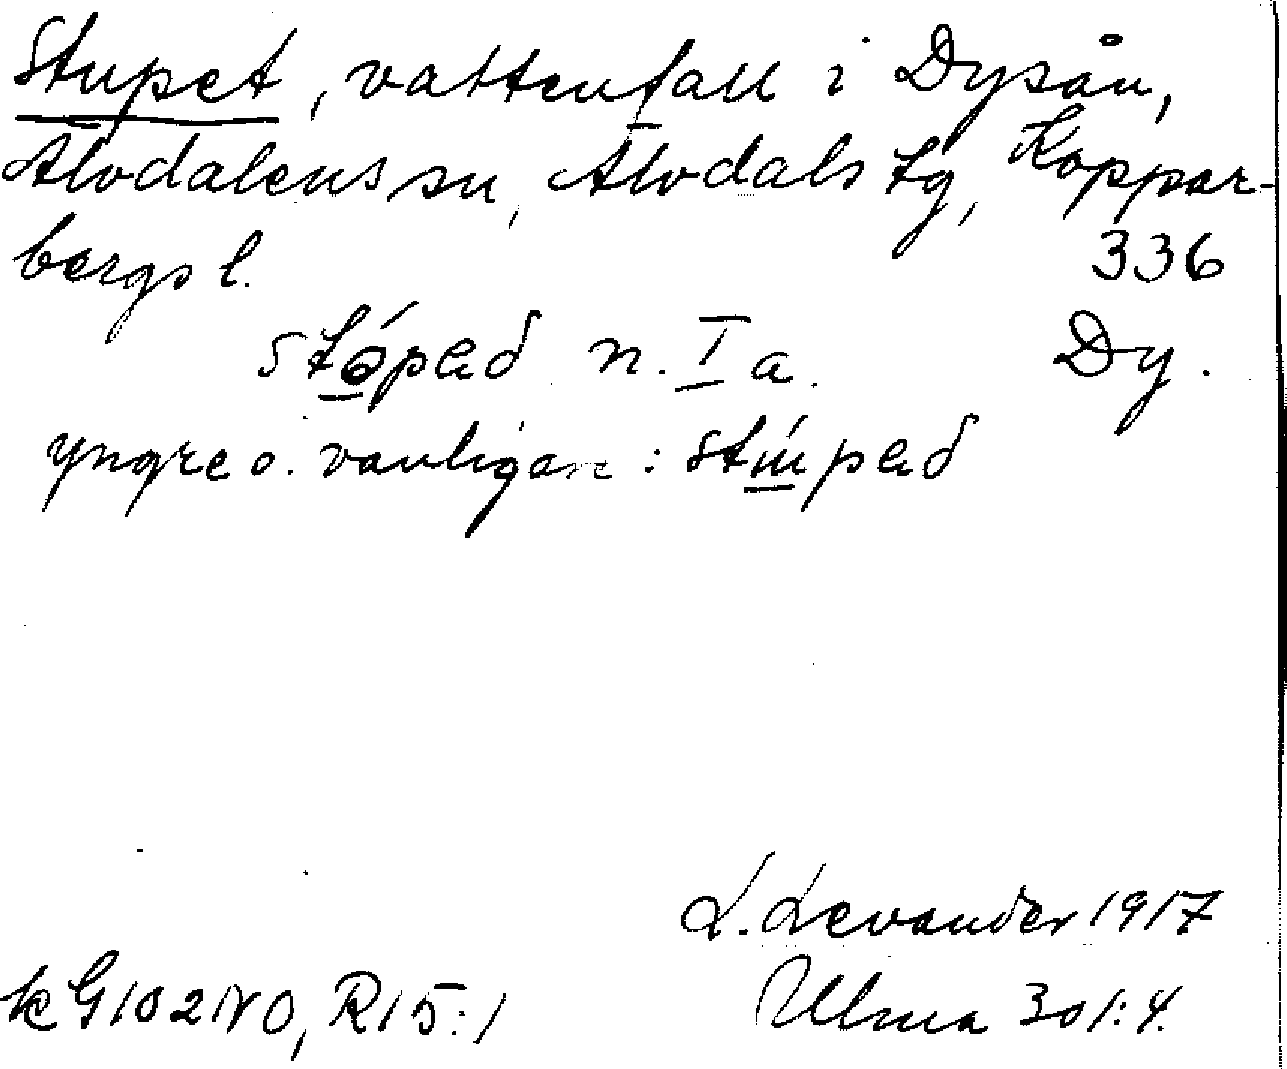 Stupet, vattenfall i Dysån,
Älvdalens sn, Älvdals tg, Koppar-
bergs l. 336
stópeð n. I a. Dy.
yngre o. vanligare: stúpeð
L. Levander 1917
kG102NO, R15:1 Ulma 301:4.